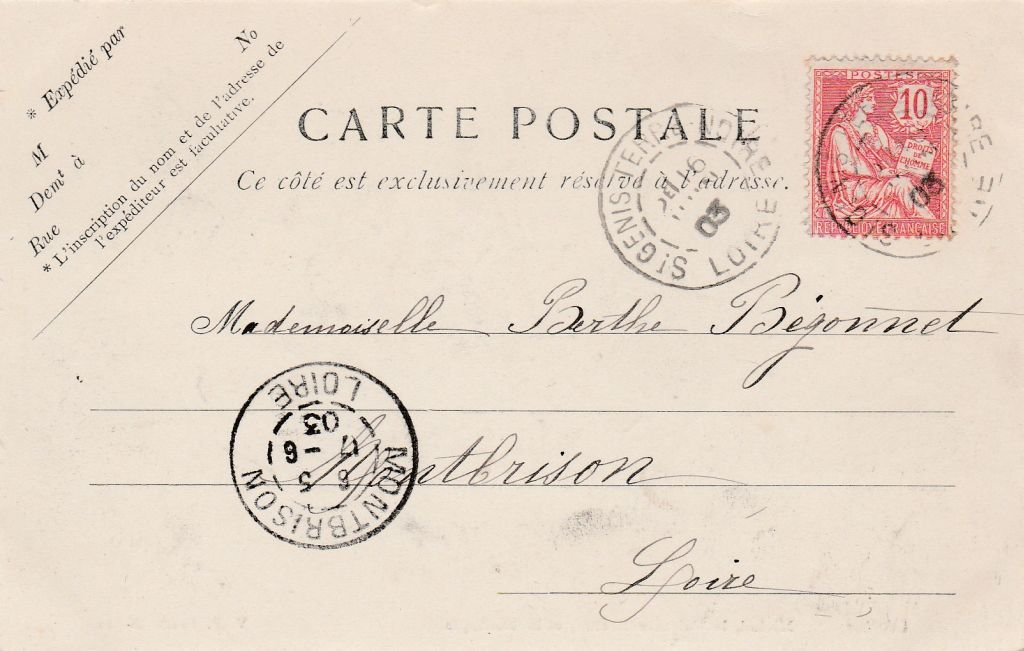 * Expédié par
M
Demt à
Rue No
* L'inscription du nom et de l'adresse de
l'expéditeur est facultative.
CARTE POSTALE
Ce côté est exclusivement réservé à l'adresse.
POSTES
10
DROITS
DE
L'HOMME
REPUBLIQUE FRANÇAISE
St GENIS-TERRE-NOIRE
03
LOIRE
03
Mademoiselle Berthe Bégonnet
MONTBRISON
6
03
LOIRE
Montbrison
Loire